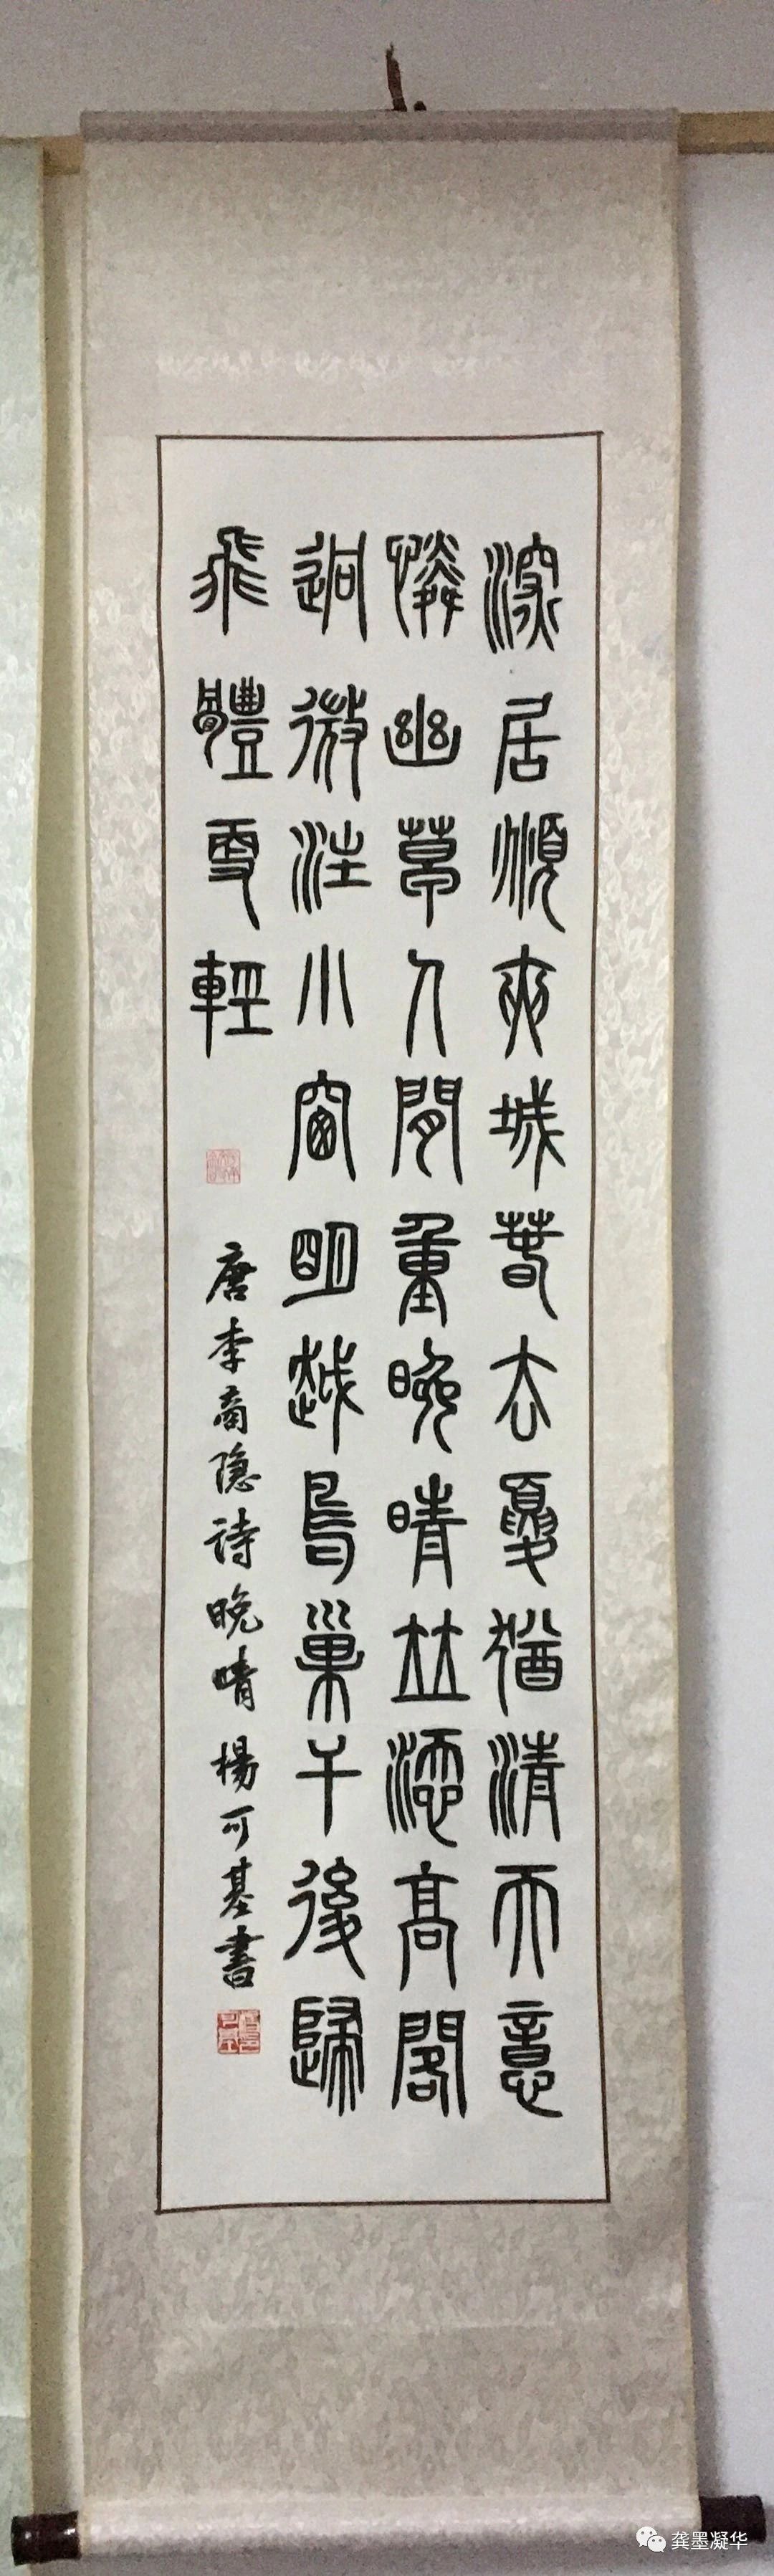 深居頫夾城春去夏猶清天意
憐幽草人間重晚晴並添高閣
迥微注小窗明越鳥巢干後歸
飛體更輕
唐李商隐詩晚晴 楊可基書
龚墨凝华